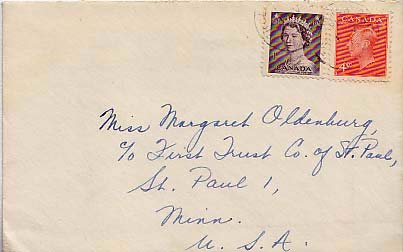 CANADA
CANADA
Miss Margaret Oldenburg,
c/o First Trust Co. of St. Paul,
St. Paul 1,
Minn.
U. S. A.